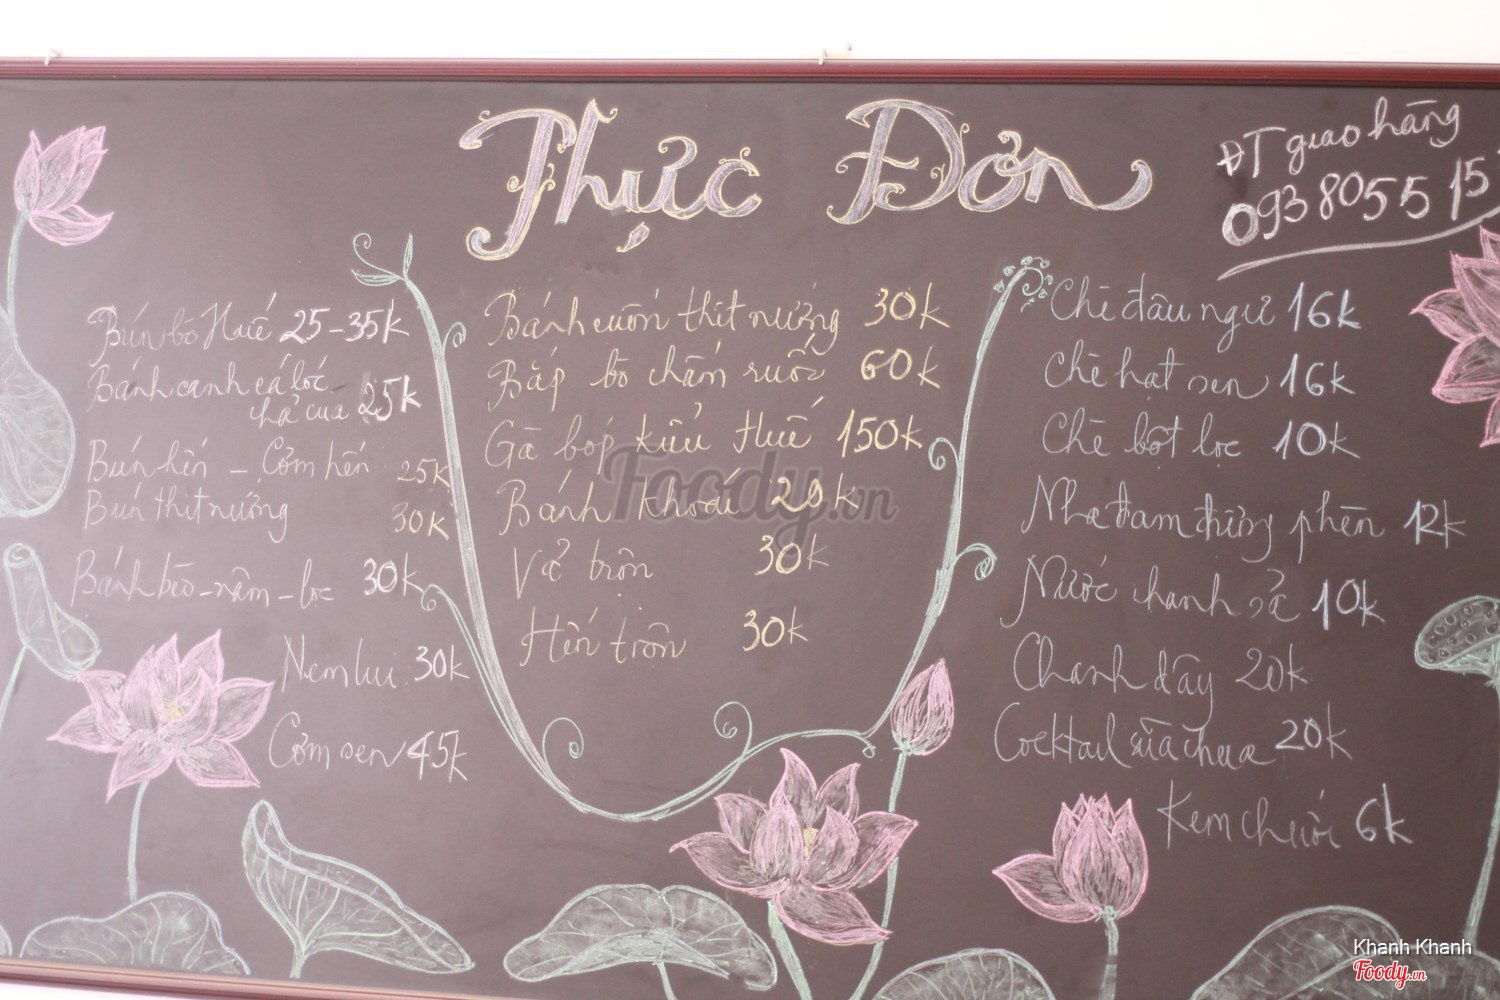 Thực Đơn
ĐT giao hàng
093 8055 15
Bún bò Huế 25-35k
Bánh canh cá lóc
chả cua 25k
Bún hến - Cơm hến 25k
Bún thịt nướng 30k
Bánh bèo - nậm - lọc 30k
Nem lụi 30k
Cơm sen 45k
Bánh cuốn thịt nướng 30k
Bắp bò chấm ruốc 60k
Gà bóp kiểu Huế 150k
Bánh khoái 20k
Vả trộn 30k
Hến trộn 30k
Chè đậu ngự 16k
Chè hạt sen 16k
Chè bột lọc 10k
Nha đam đường phèn 12k
Nước chanh sả 10k
Chanh dây 20k
Cocktail sữa chua 20k
Kem chuối 6k
Foody.vn
Khanh Khanh
Foody.vn